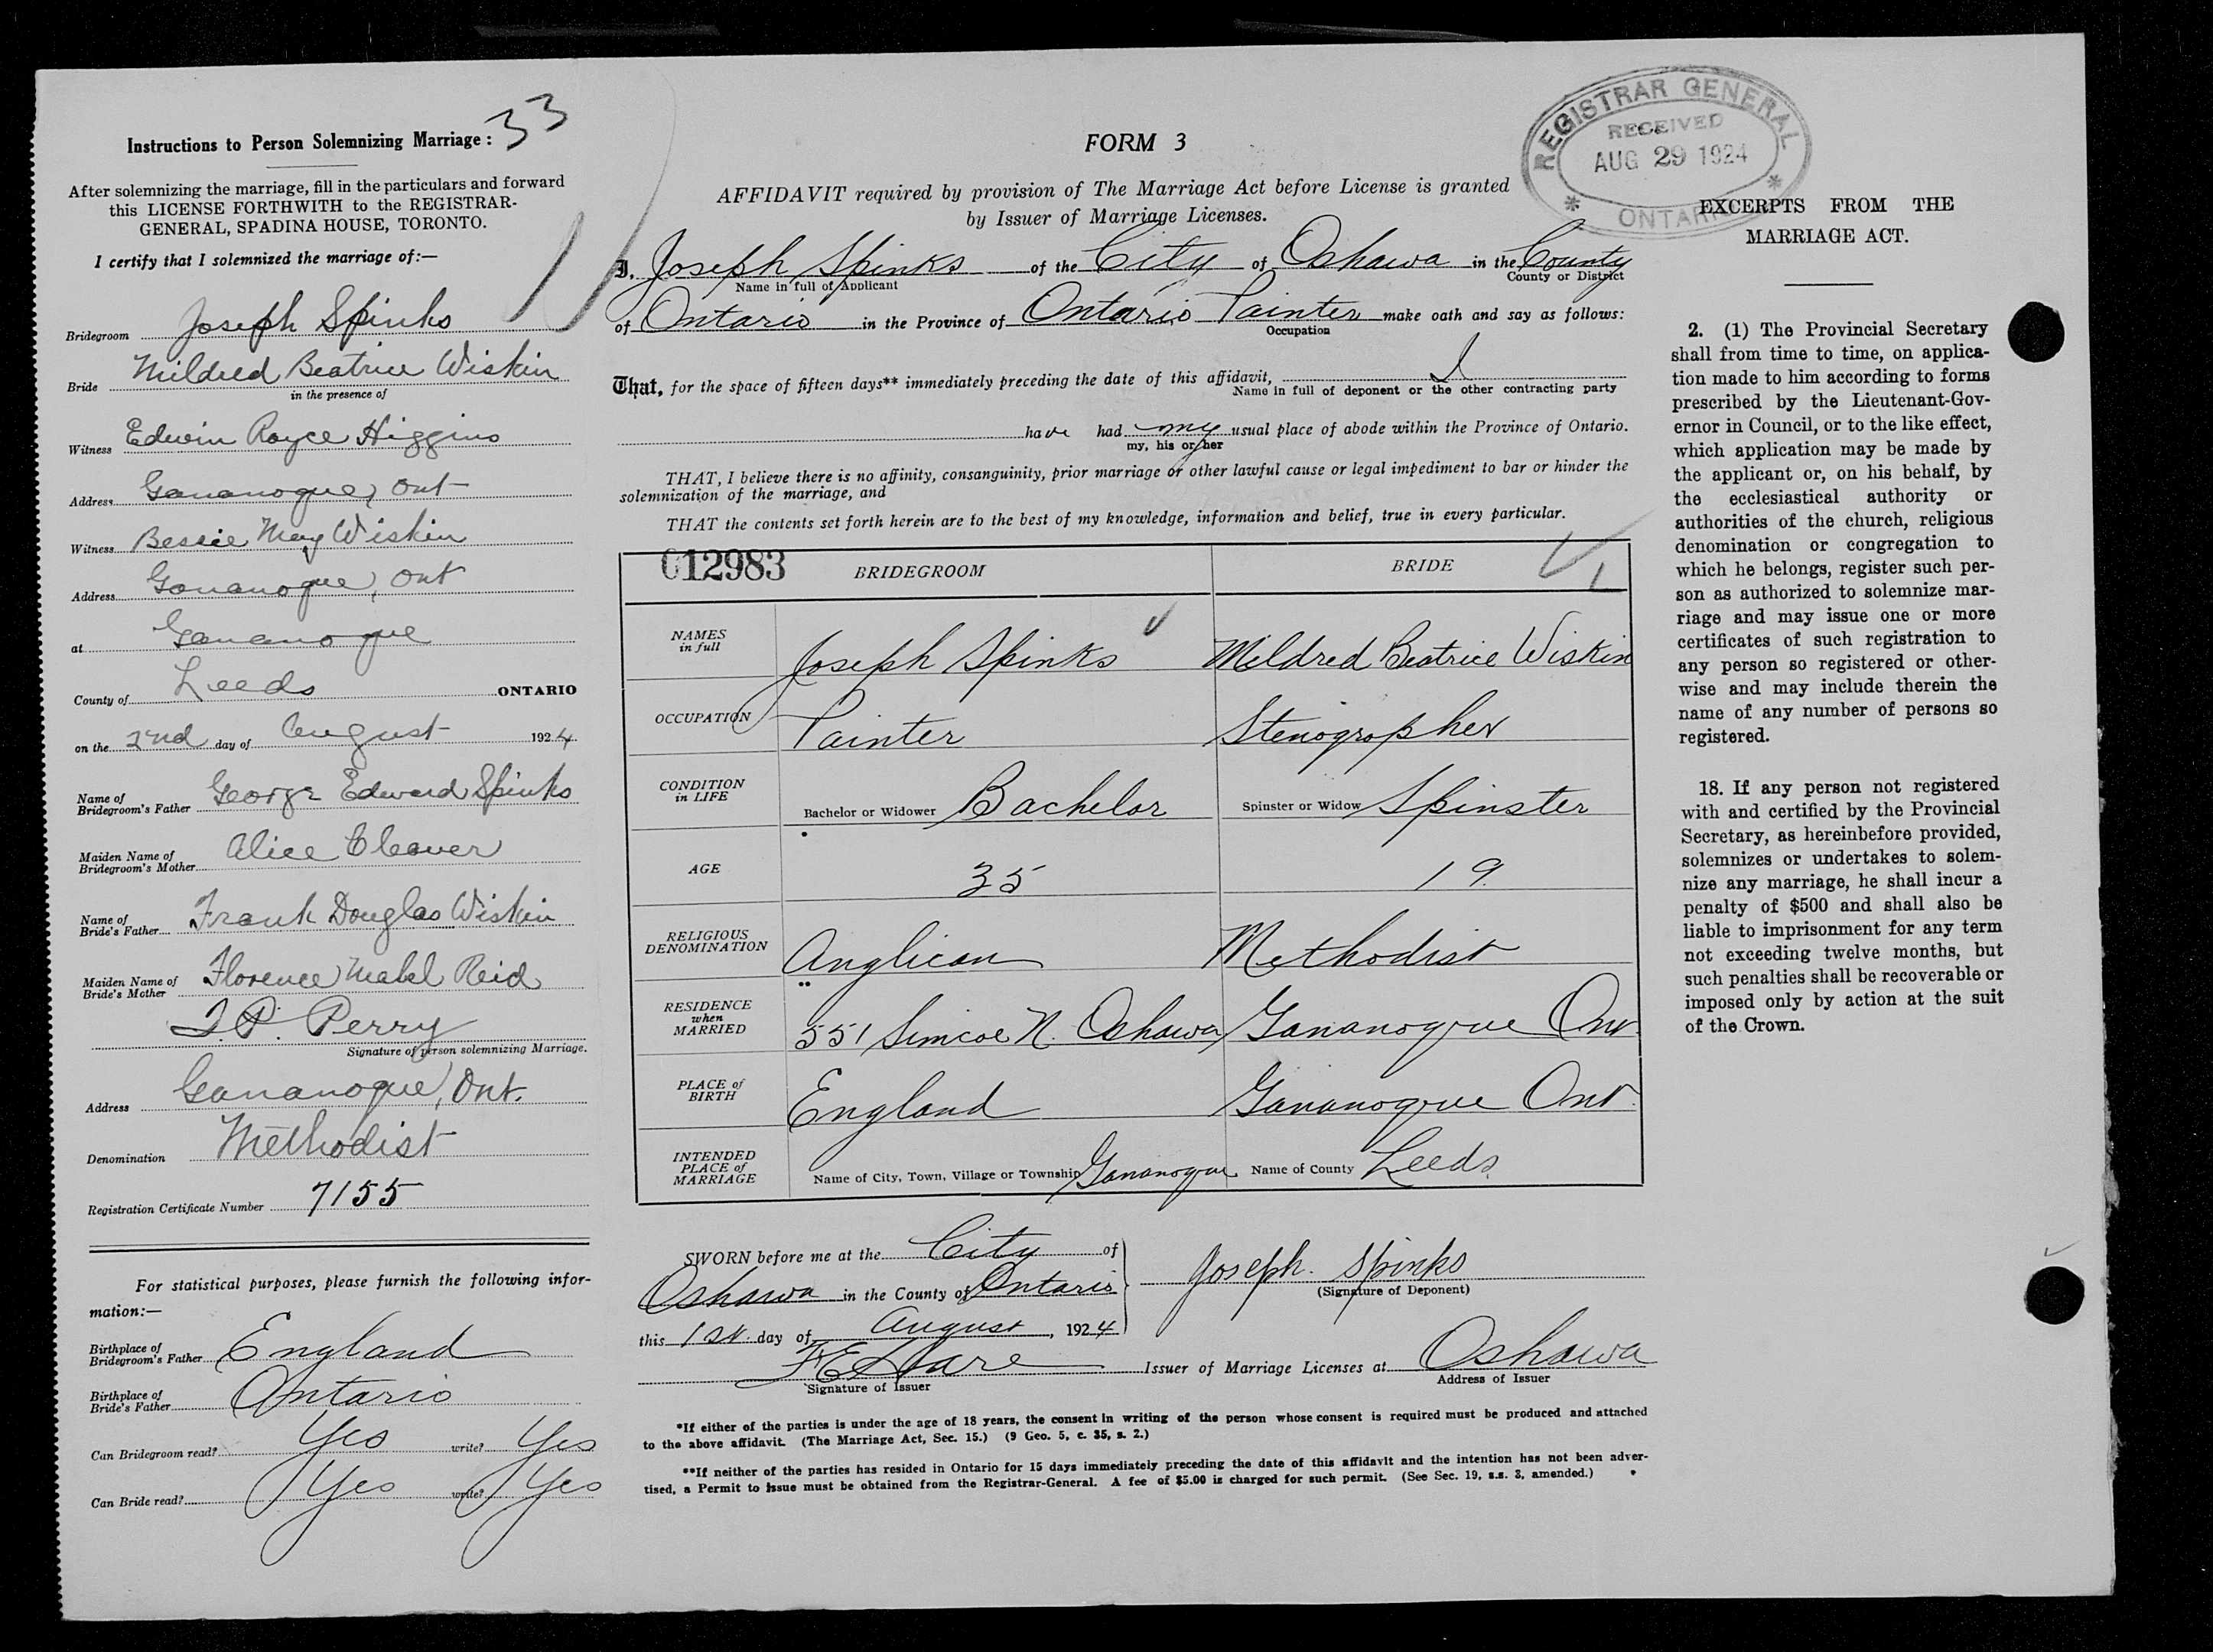 Instructions to Person Solemnizing Marriage: 33
After solemnizing the marriage, fill in the particulars and forward
this LICENSE FORTHWITH to the REGISTRAR-
GENERAL, SPADINA HOUSE, TORONTO.
I certify that I solemnized the marriage of:—
Bridegroom Joseph Spinks
Bride Mildred Beatrice Wiskin
in the presence of
Witness Edwin Royce Higgins
Address Gananoque, Ont
Witness Bessie May Wiskin
Address Gananoque, Ont
at Gananoque
County of Leeds ONTARIO
on the 2nd day of August 1924
Name of
Bridegroom's Father George Edward Spinks
Maiden Name of
Bridegroom's Mother Alice Cleaver
Name of
Bride's Father Frank Douglas Wiskin
Maiden Name of
Bride's Mother Florence Mabel Reid
J. P. Perry
Signature of person solemnizing Marriage.
Address Gananoque, Ont.
Denomination Methodist
Registration Certificate Number 7155
For statistical purposes, please furnish the following infor-
mation:—
Birthplace of
Bridegroom's Father England
Birthplace of
Bride's Father Ontario
Can Bridegroom read? Yes write? Yes
Can Bride read? Yes write? Yes
FORM 3
AFFIDAVIT required by provision of The Marriage Act before License is granted
by Issuer of Marriage Licenses.
I, Joseph Spinks of the City of Oshawa in the County
Name in full of Applicant County or District
of Ontario in the Province of Ontario Painter make oath and say as follows:
Occupation
That, for the space of fifteen days** immediately preceding the date of this affidavit, I
Name in full of deponent or the other contracting party
have had my usual place of abode within the Province of Ontario.
my, his or her
THAT, I believe there is no affinity, consanguinity, prior marriage or other lawful cause or legal impediment to bar or hinder the
solemnization of the marriage, and
THAT the contents set forth herein are to the best of my knowledge, information and belief, true in every particular.
012983 BRIDEGROOM BRIDE
NAMES
in full Joseph Spinks Mildred Beatrice Wiskin
OCCUPATION Painter Stenographer
CONDITION
in LIFE Bachelor or Widower Bachelor Spinster or Widow Spinster
AGE 35 19
RELIGIOUS
DENOMINATION Anglican Methodist
RESIDENCE
when
MARRIED 551 Simcoe N. Oshawa Gananoque Ont
PLACE of
BIRTH England Gananoque Ont
INTENDED
PLACE of
MARRIAGE Name of City, Town, Village or Township Gananoque Name of County Leeds
SWORN before me at the City of
Oshawa in the County of Ontario
this 1st day of August, 1924
Joseph. Spinks
(Signature of Deponent)
F E Hare Issuer of Marriage Licenses at Oshawa
Signature of Issuer Address of Issuer
*If either of the parties is under the age of 18 years, the consent in writing of the person whose consent is required must be produced and attached
to the above affidavit. (The Marriage Act, Sec. 15.) (9 Geo. 5, c. 35, s. 2.)
**If neither of the parties has resided in Ontario for 15 days immediately preceding the date of this affidavit and the intention has not been adver-
tised, a Permit to Issue must be obtained from the Registrar-General. A fee of $5.00 is charged for such permit. (See Sec. 19, s.s. 3, amended.)
REGISTRAR GENERAL
RECEIVED
AUG 29 1924
* ONTARIO *
EXCERPTS FROM THE
MARRIAGE ACT.
2. (1) The Provincial Secretary
shall from time to time, on applica-
tion made to him according to forms
prescribed by the Lieutenant-Gov-
ernor in Council, or to the like effect,
which application may be made by
the applicant or, on his behalf, by
the ecclesiastical authority or
authorities of the church, religious
denomination or congregation to
which he belongs, register such per-
son as authorized to solemnize mar-
riage and may issue one or more
certificates of such registration to
any person so registered or other-
wise and may include therein the
name of any number of persons so
registered.
18. If any person not registered
with and certified by the Provincial
Secretary, as hereinbefore provided,
solemnizes or undertakes to solem-
nize any marriage, he shall incur a
penalty of $500 and shall also be
liable to imprisonment for any term
not exceeding twelve months, but
such penalties shall be recoverable or
imposed only by action at the suit
of the Crown.